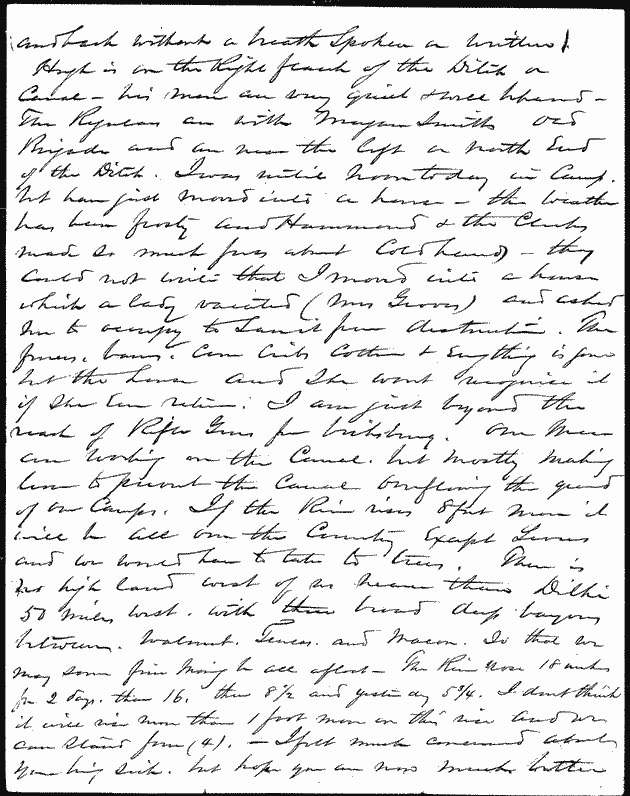 and back without a breath Spoken or written).
Hugh is on the Right flank of the Ditch or
Canal - his men are very quiet & well behaved -
The Regulars are with Morgan Smiths old
Brigade and are near the left or north End
of the Ditch. I was until Noon today in Camp.
but have just moved into a house - the weather
has been frosty and Hammond & the Clerks
made so much fuss about Cold hands - they
could not write that I moved into a house
which a lady vacated (Mrs Groves) and asked
me to occupy to Save it from destruction. The
fences. barns. Corn Cribs Cotton & Everything is gone
but the house and She wont recognise it
if She Ever return. I am just beyond the
reach of Rifle Guns from Vicksburg. Our Men
are working on the Canal. but mostly making
levee to prevent the Canal overflowing the ground
of our Camps. If the River rises 8 feet more it
will be all over the Country Except Levees
and we would have to take to trees. There is
no high land west of us nearer than Delhi
50 miles West. with three broad deep bayous
between. Walnut. Tensas. and Macon. So that we
may some fine Morng be all afloat - The River rose 18 inches
for 2 days. then 16. then 8 1/2 and yesterday 5 3/4. I dont think
it will rise more than 1 foot more on this rise and we
can stand four (4). - I felt much concerned about
your being sick. but hope you are now much better